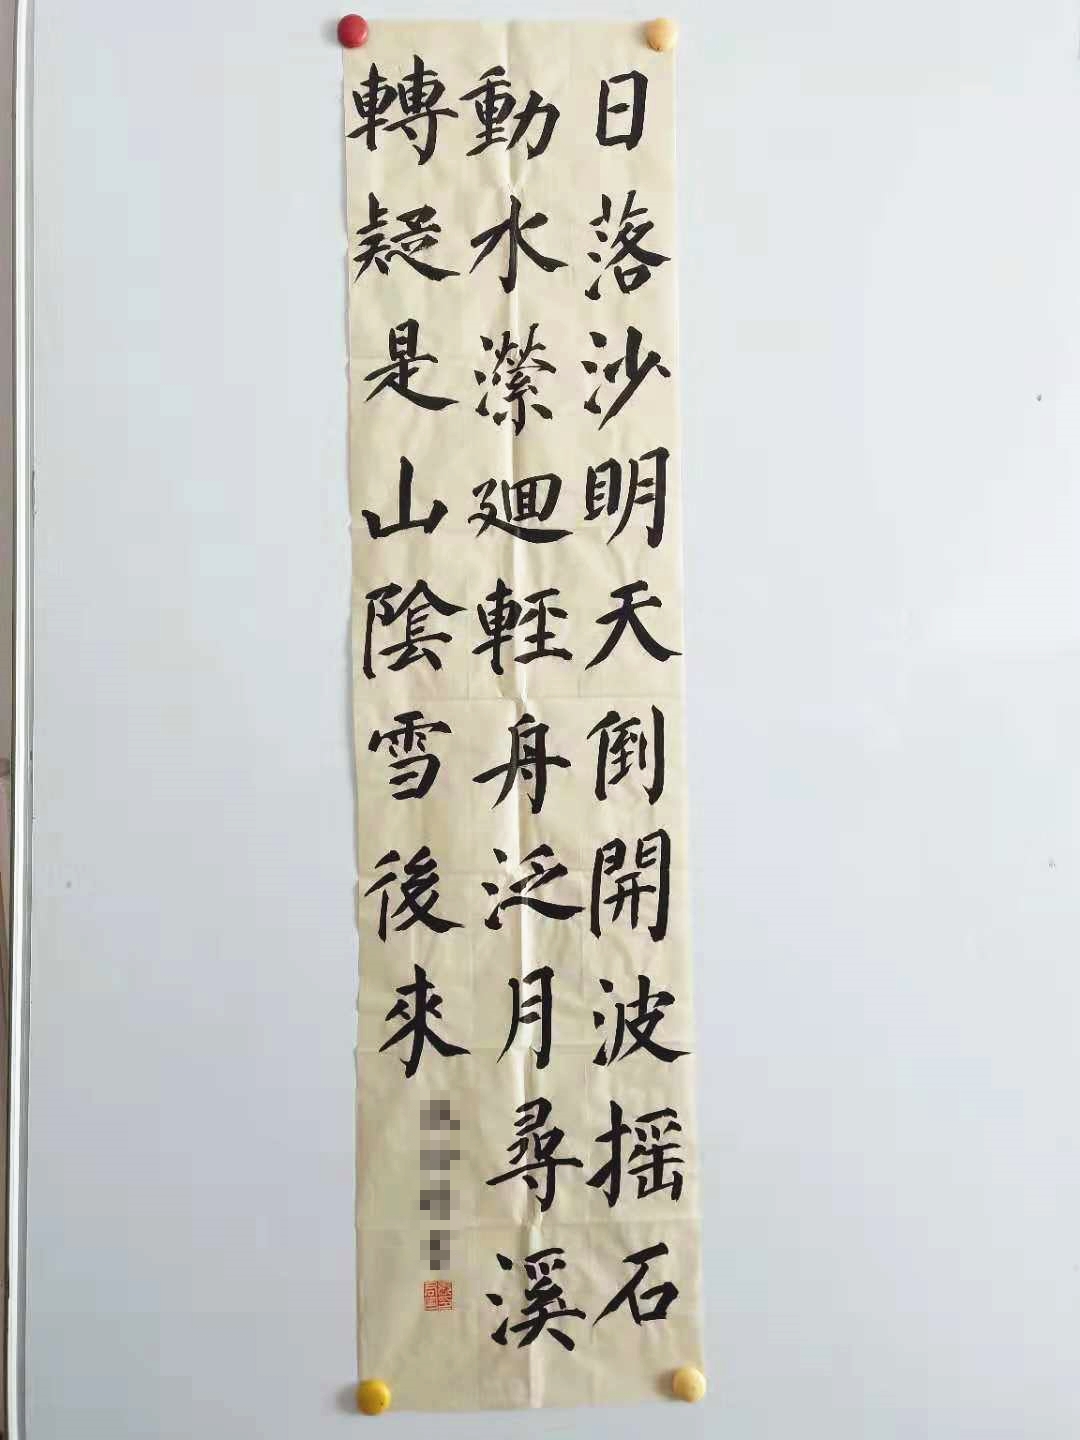 日落沙明天倒開波摇石
動水濴廻輕舟泛月尋溪
轉疑是山陰雪後來